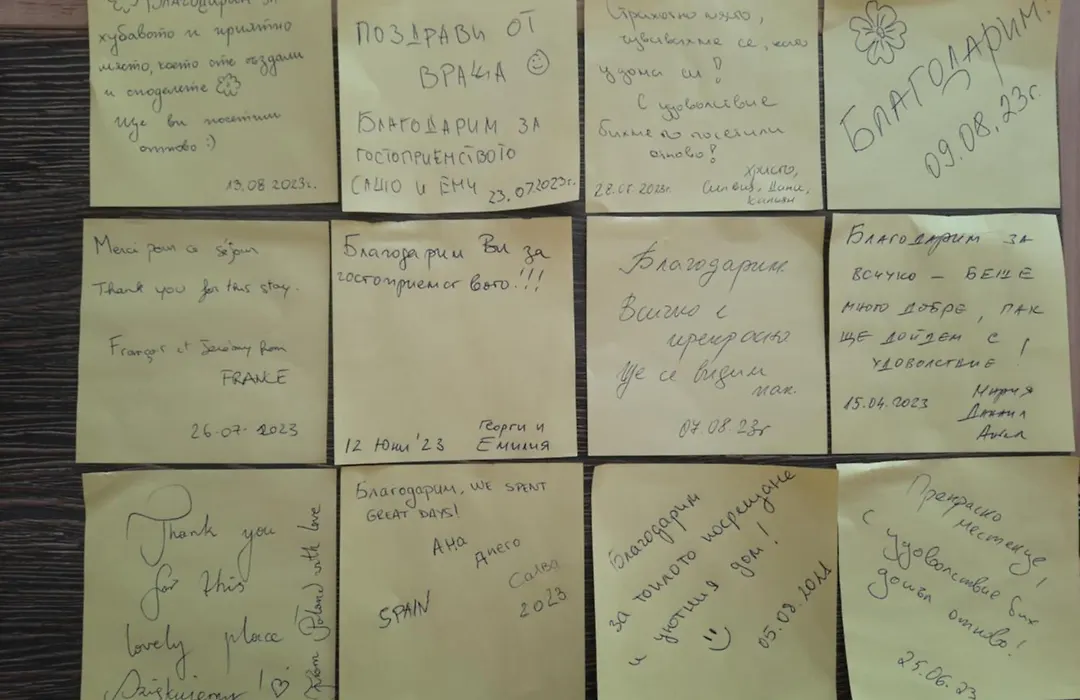 Благодарим за
хубавото и приятно
място, което сте създали
и споделяте
Ще ви посетим
отново :)
13.08 2023г.
ПОЗДРАВИ ОТ
ВРАЦА
БЛАГОДАРИМ ЗА
ГОСТОПРИЕМСТВОТО
САШО И ЕМИ 23.07.2023г.
Страхотно място,
чувствахме се, като
у дома си!
С удоволствие
бихме го посетили
отново!
Христо,
Силвия, Дани,
28.05.2023г.
БЛАГОДАРИМ!
09.08.23г.
Merci pour ce séjour
Thank you for this stay.
François et Jérémy from
FRANCE
26.07.2023
Благодарим Ви за
гостоприемството!!!
Георги и
12 Юни '23 Емилия
Благодарим.
Всичко е
прекрасно
Ще се видим
пак.
07.08.23г
БЛАГОДАРИМ ЗА
ВСИЧКО – БЕШЕ
МНОГО ДОБРЕ, ПАК
ЩЕ ДОЙДЕМ С
УДОВОЛСТВИЕ!
15.04.2023 Мария
Даниил
Ангел
Thank you
for this
lovely place
Dziękujemy!
from Poland with love
Благодарим, WE SPENT
GREAT DAYS!
АНА
ДИЕГО
САЛВА
SPAIN 2023
Благодарим
за топлото посрещане
и уютния дом!
Прекрасно
местенце,
с удоволствие бих
дошъл отново!
25.06.23